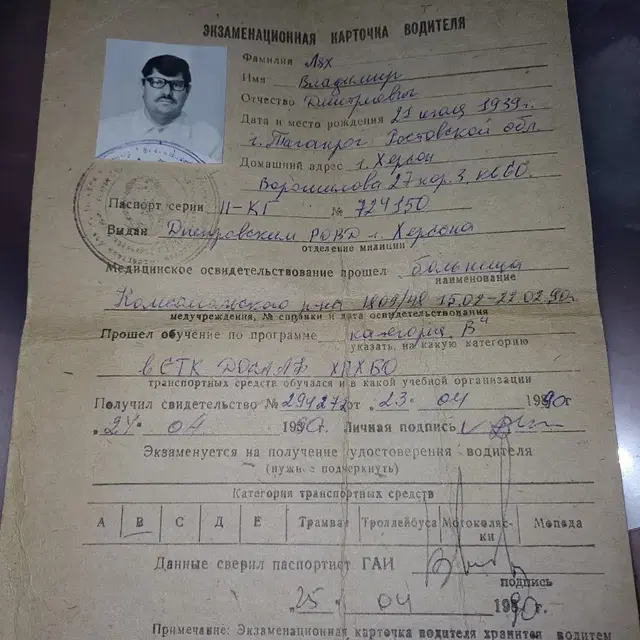 ЭКЗАМЕНАЦИОННАЯ КАРТОЧКА ВОДИТЕЛЯ
Фамилия Лях
Имя Владимир
Отчество Дмитриевич
Дата и место рождения 21 июля 1939г.
г. Таганрог Ростовской обл.
Домашний адрес г. Херсон
Ворошилова 27 кор. 3, кв 60.
Паспорт серии II-КГ № 724150
Выдан Днепровским РОВД г. Херсона
отделение милиции
Медицинское освидетельствование прошел больница
наименование
Комсомольского р-на 1809/48 15.02-22.02.90г.
медучреждения, № справки и дата освидетельствования
Прошел обучение по программе категория „В“
указать, на какую категорию
в СТК ДОСААФ ХПХБО
транспортных средств обучался и в какой учебной организации
Получил свидетельство № 294272 от „23“ 04 1990г
„24“ 04 1990г. Личная подпись
Экзаменуется на получение удостоверения водителя
(нужное подчеркнуть)
Категория транспортных средств
А В С Д Е Трамвая Троллейбуса Мотоколяс-
ки Мопеда
Данные сверил паспортист ГАИ
подпись
„25“ 04 1990г.
Примечание: Экзаменационная карточка водителя хранится водителем